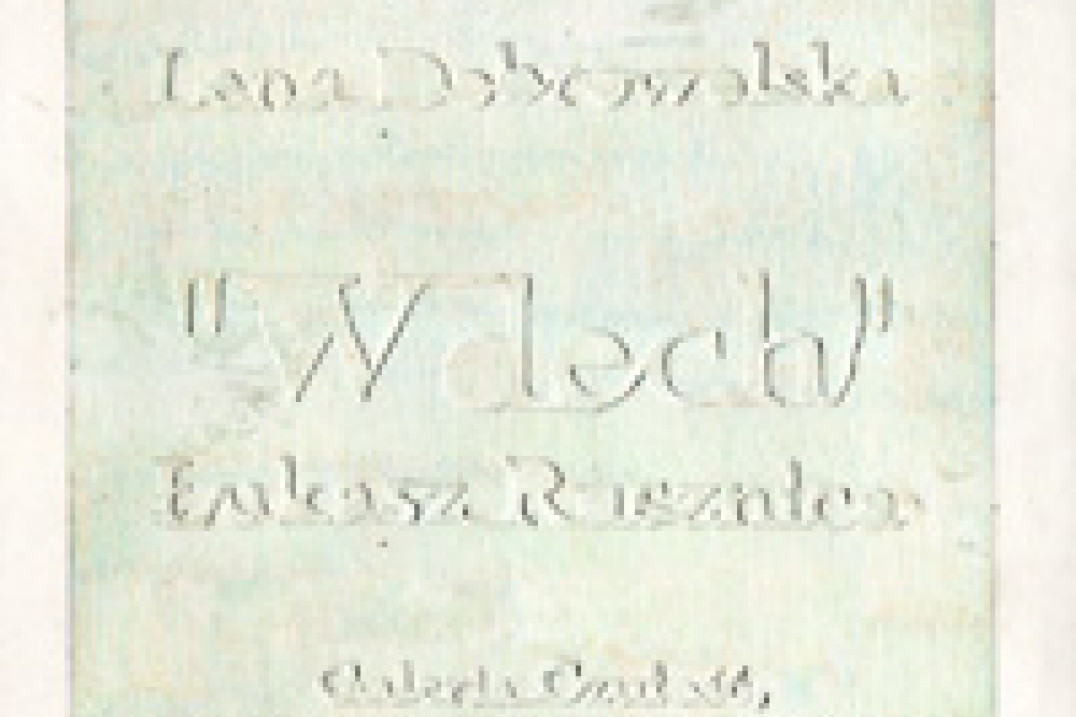 Lena Dobrowolska
"Wdech"
Łukasz Rusznica
Galeria